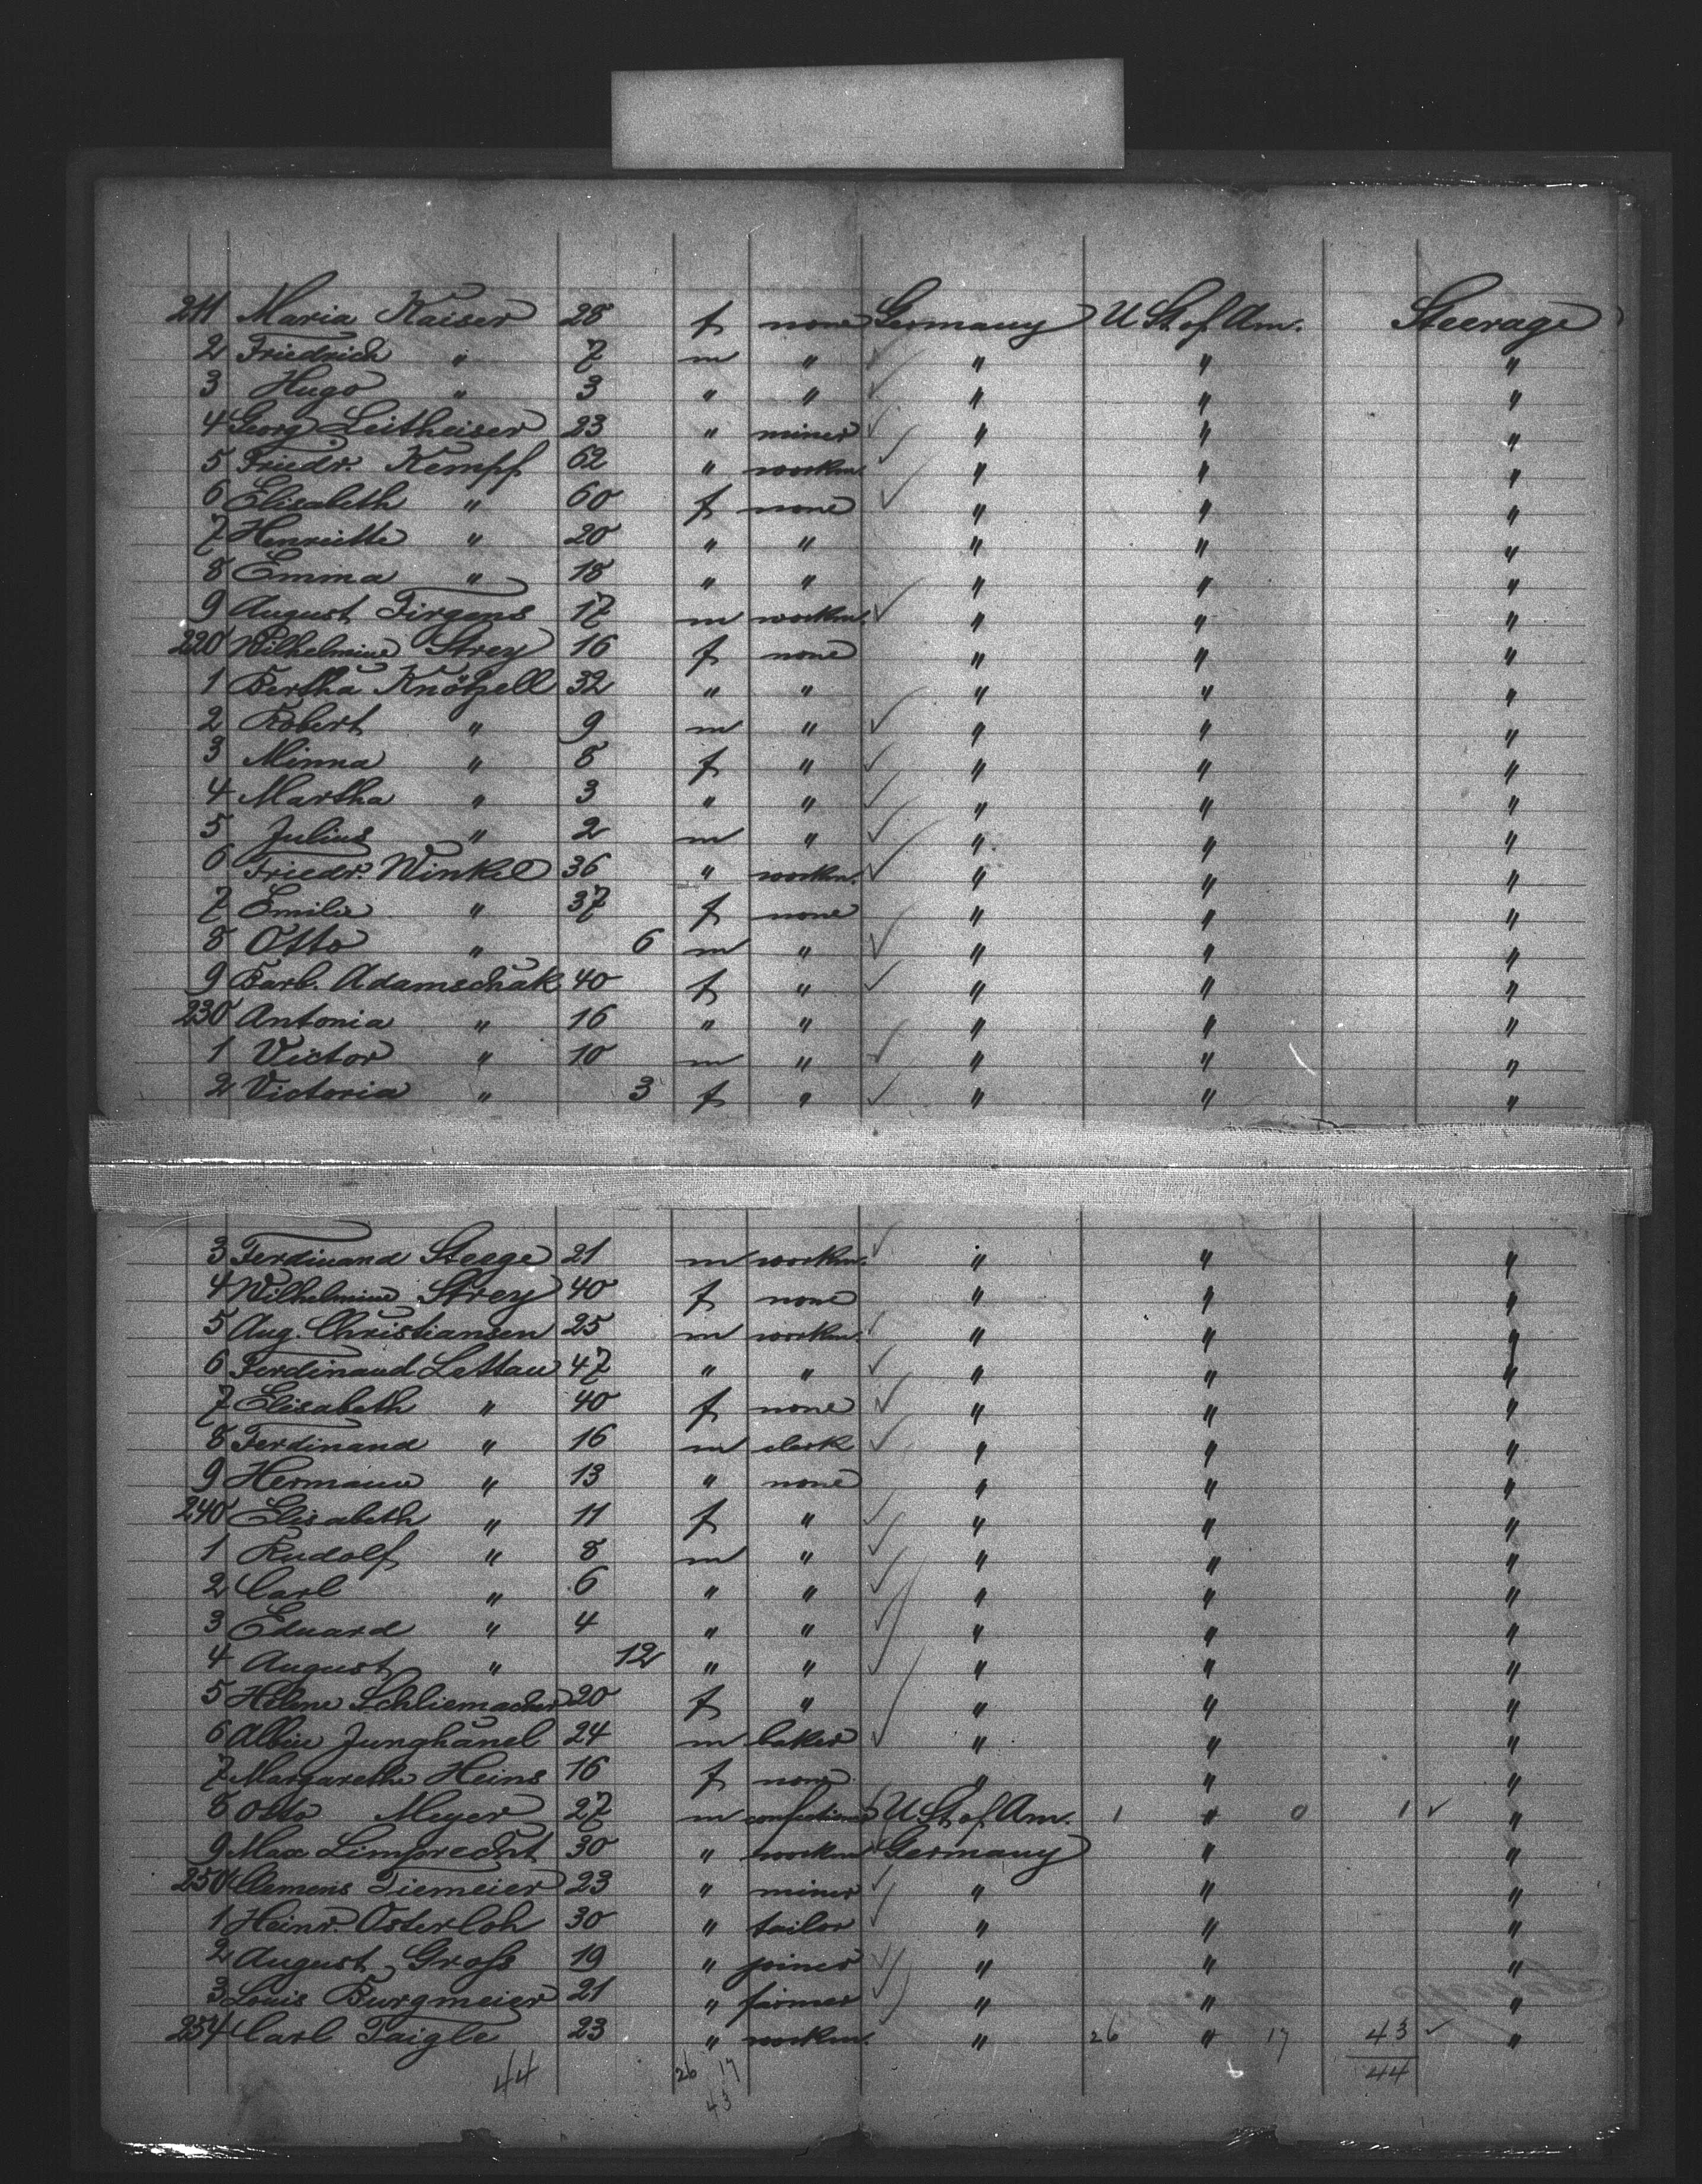 211 Maria Kaiser 28 f none Germany U St of Am. Steerage
2 Friedrich " 7 m " " " "
3 Hugo " 3 " " " " "
4 Georg Leitheiser 23 " miner " " "
5 Friedr. Kempf 62 " workm. " " "
6 Elisabeth " 60 f none " " "
7 Henriette " 20 " " " " "
8 Emma " 18 " " " " "
9 August Firgens 17 m workm. " " "
220 Wilhelmine Strey 16 f none " " "
1 Bertha Knötzell 32 " " " " "
2 Robert " 9 m " " " "
3 Minna " 8 f " " " "
4 Martha " 3 " " " " "
5 Julius " 2 m " " " "
6 Friedr. Winkel 36 " workm. " " "
7 Emilie " 37 f none " " "
8 Otto " 6 m " " " "
9 Barb. Adamschak 40 f " " " "
230 Antonia " 16 " " " " "
1 Victor " 10 m " " " "
2 Victoria " 3 f " " " "
3 Ferdinand Steege 21 m workm. " " "
4 Wilhelmine Strey 40 f none " " "
5 Aug. Christiansen 25 m workm. " " "
6 Ferdinand Lettau 47 " " " " "
7 Elisabeth " 40 f none " " "
8 Ferdinand " 16 m clerk " " "
9 Hermann " 13 " none " " "
240 Elisabeth " 11 f " " " "
1 Rudolf " 8 m " " " "
2 Carl " 6 " " " " "
3 Eduard " 4 " " " " "
4 August " 12 " " " " "
5 Helene Schliemacher 20 f " " " "
6 Albin Junghänel 24 m baker " " "
7 Margarethe Heins 16 f none " " "
8 Otto Meyer 27 m confectioner U. St. of Am. 1 " 0 1 ✓ "
9 Max Limprecht 30 " workm Germany " "
250 Clemens Tiemeier 23 " miner " " "
1 Heinr. Osterloh 30 " tailor " " "
2 August Groß 19 " joiner " " "
3 Louis Burgmeier 21 " farmer " " "
254 Carl Taigle 23 " workm. " 26 " 17 43 ✓ "
44 26 17 44
43